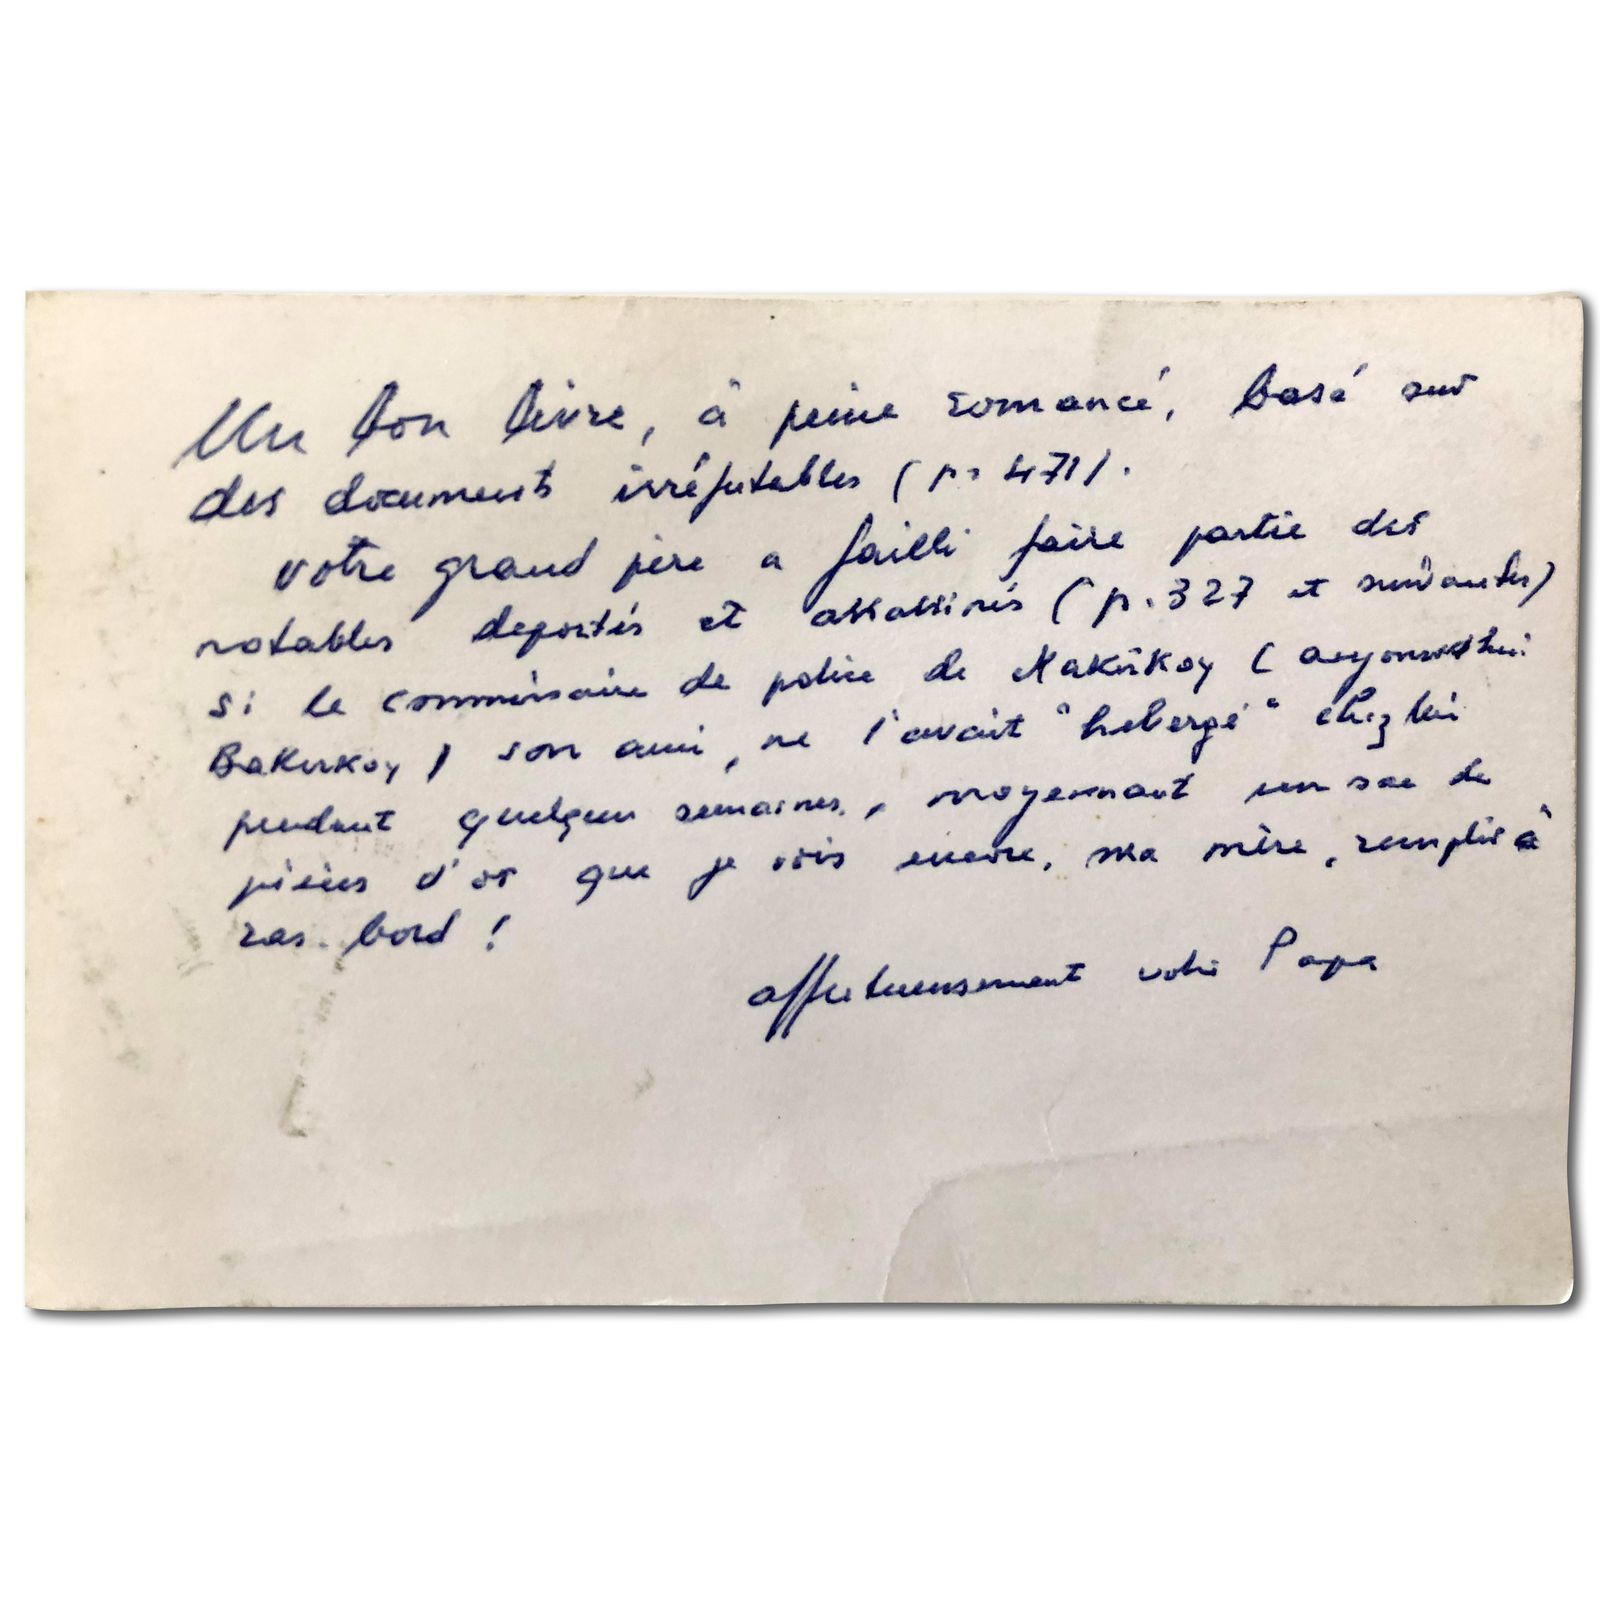 Un bon livre, à peine romancé, basé sur
des documents irréfutables (p. 471).
votre grand père a failli faire partie des
notables deportés et assassinés (p. 327 et suivantes)
si le commissaire de police de Makrikoy (aujourd'hui
Bakirkoy) son ami, ne l'avait "hebergé" chez lui
pendant quelques semaines, moyennant un sac de
pièces d'or que je vois encore, ma mère, remplir à
ras-bord !
affectueusement votre Papa